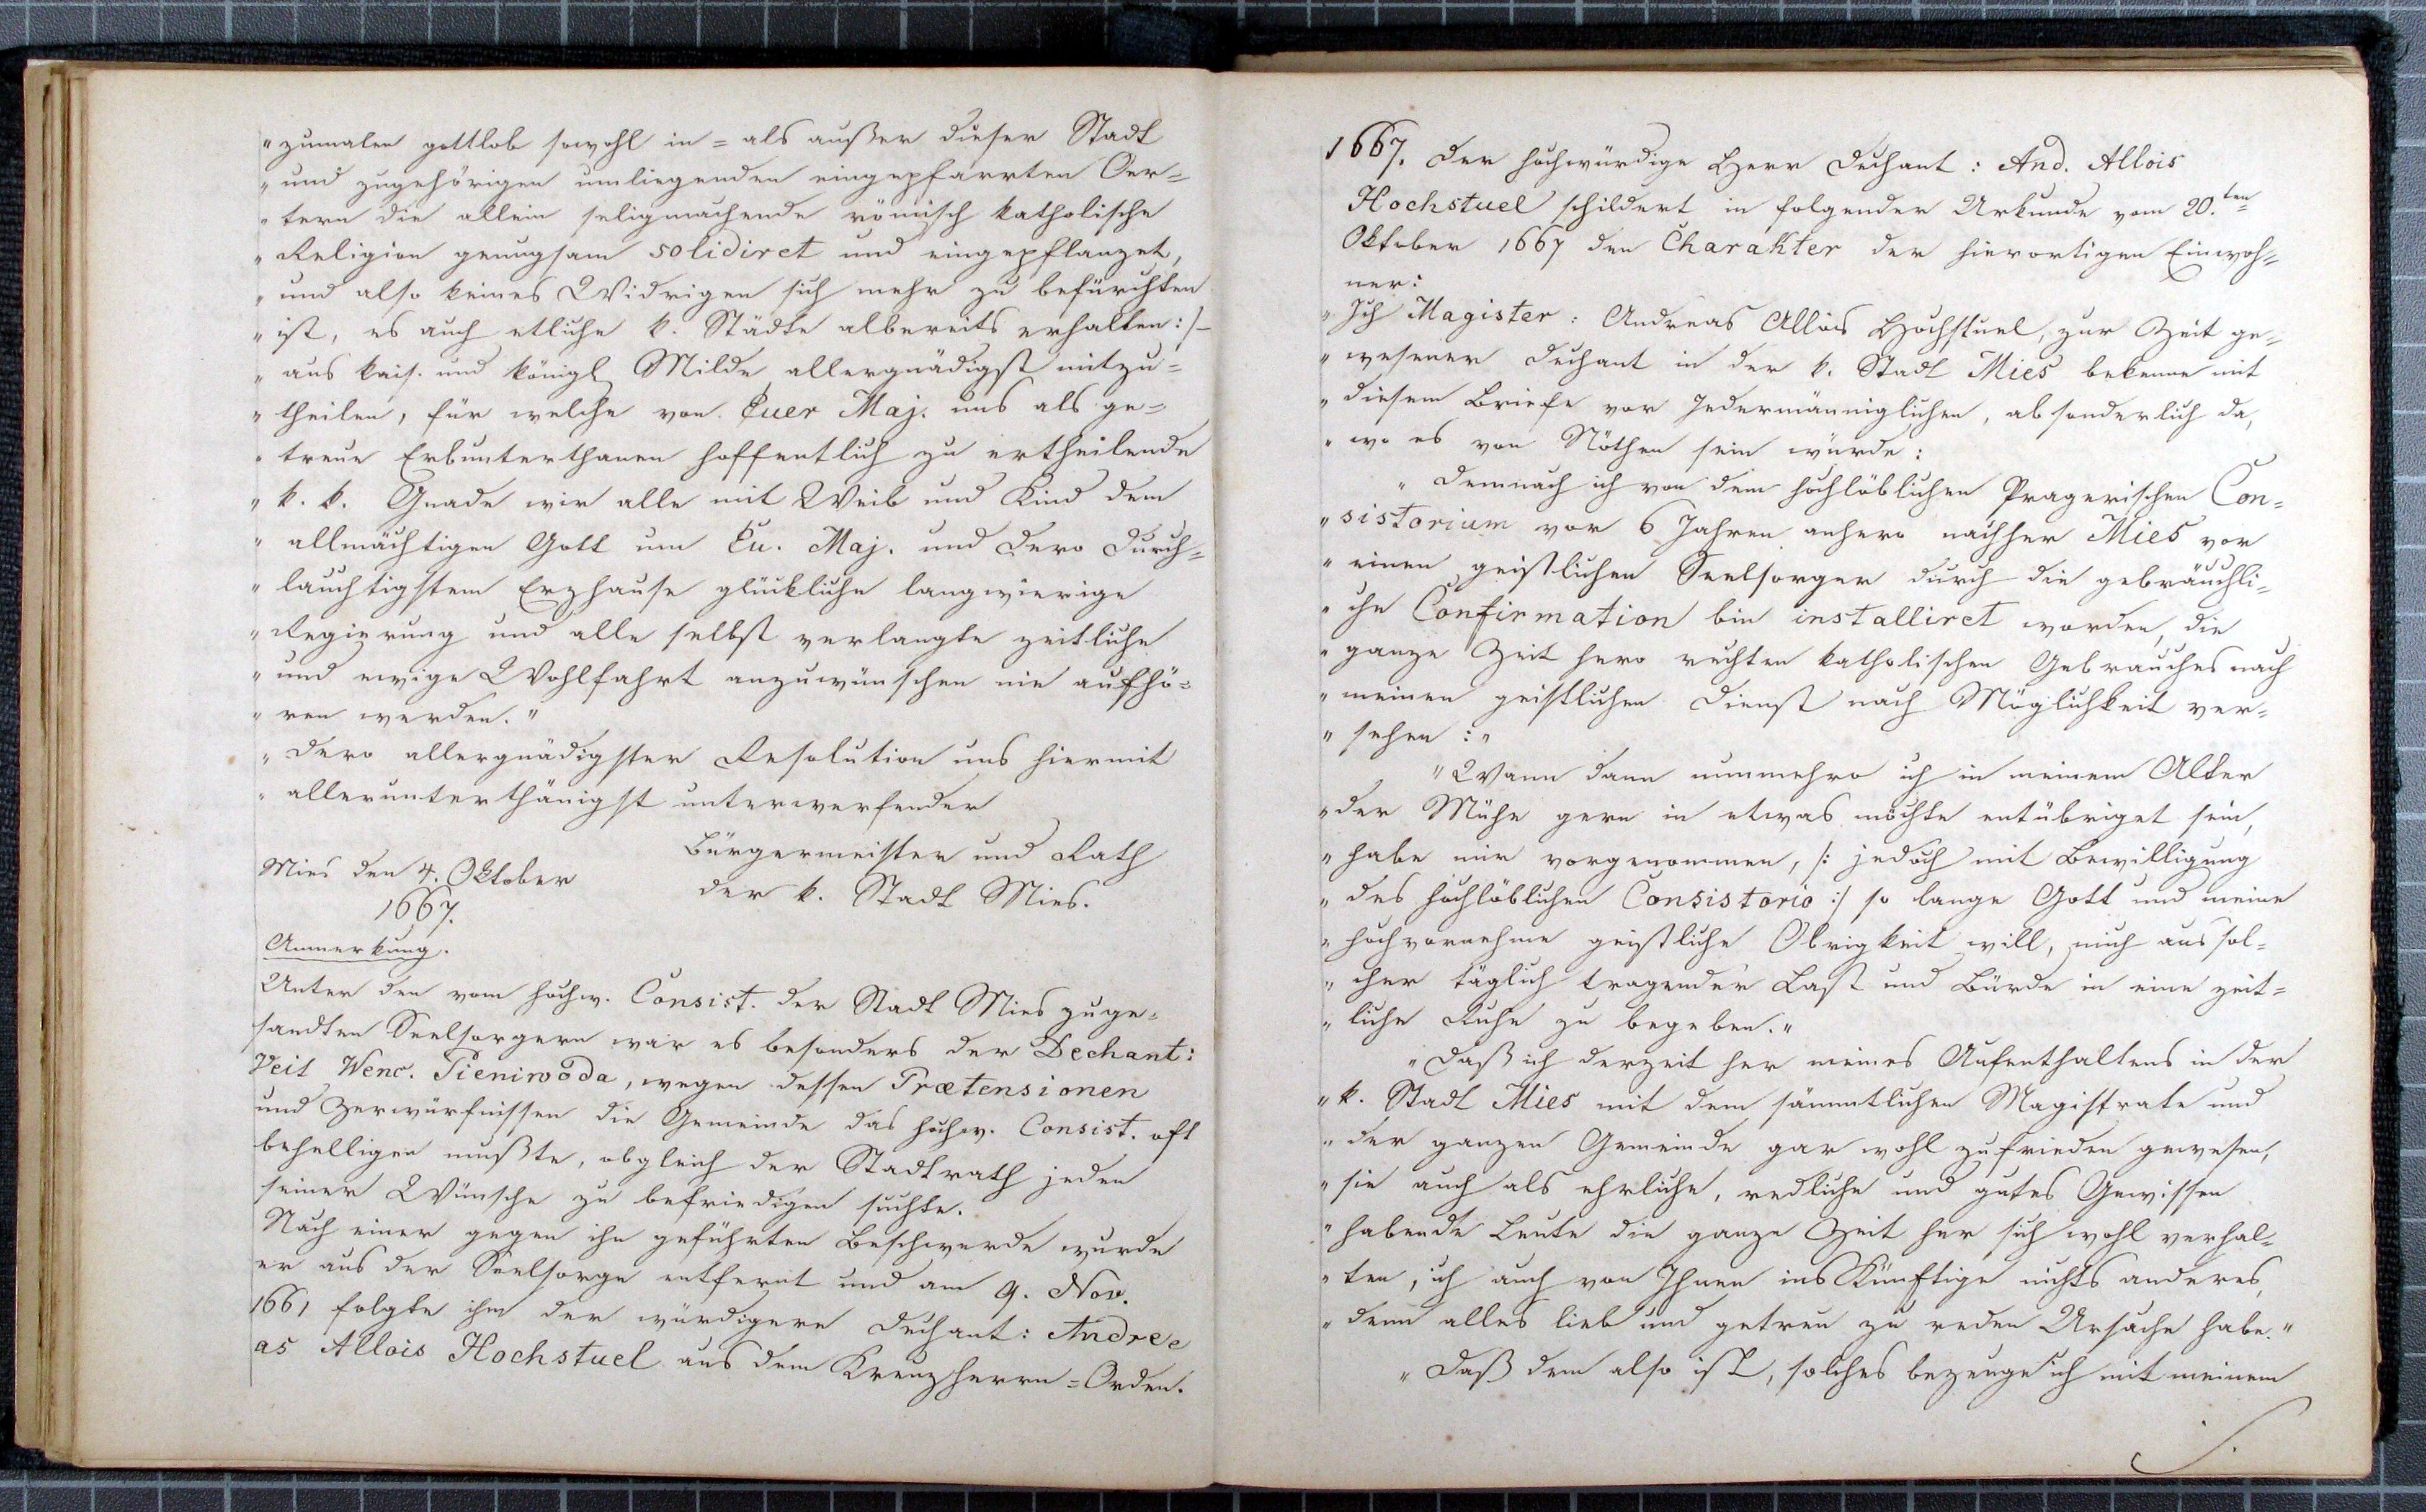 "zumalen gottlob sowohl in = als außer dieser Stadt
"und zugehörigen umliegenden eingepfarrten Oer=
"tern die allein seligmachende römisch katholische
"Religion genugsam solidiret und eingepflanzet,
"und also keines Widrigen sich mehr zu befürchten
"ist, es auch etliche k. Städte albereits erhalten :/–
"aus kais. und königl. Milde allergnädigst mitzu=
"theilen, für welche von Euer Maj. uns als ge=
"treue Erbunterthanen hoffentlich zu ertheilende
"k. k. Gnade wir alle mit Weib und Kind dem
"allmächtigen Gott um Eu. Maj. und Dero Durch=
"lauchtigstem Erzhause glückliche langwierige
"Regierung und alle selbst verlangte zeitliche
"und ewige Wohlfahrt anzuwünschen nie aufhö=
"ren werden."
"Dero allergnädigster Resolution uns hiermit
"allerunterthänigst unterwerfender
Bürgermeister und Rath
Mies den 4. Oktober
der k. Stadt Mies.
1667.
Anmerkung.
Unter den vom hochw. Consist. der Stadt Mies zuge=
sandten Seelsorgern war es besonders der Dechant:
Veit Wenc. Pieniwoda, wegen dessen Prætensionen
und Zerwürfnissen die Gemeinde das hochw. Consist. oft
behelligen mußte, obgleich der Stadtrath jeden
seiner Wünsche zu befriedigen suchte.
Nach einer gegen ihn geführten Beschwerde wurde
er aus der Seelsorge entfernt und am 9. Nov.
1661 folgte ihm der würdigere Dechant: Andre=
as Allois Hochstuel aus dem Kreuzherrn=Orden.
1667. Der hochwürdige Herr Dechant: And. Allois
Hochstuel schildert in folgender Urkunde vom 20.ten
Oktober 1667 den Charakter der hierortigen Einwoh=
ner:
"Ich Magister: Andreas Allois Hochstuel, zur Zeit ge=
"wesener Dechant in der k. Stadt Mies bekenne mit
"diesem Briefe vor Jedermänniglichen, absonderlich da,
"wo es von Nöthen sein würde:
"Demnach ich von dem hochlöblichen Pragerischen Con=
"sistorium vor 6 Jahren anhero nachher Mies vor
"einen geistlichen Seelsorger durch die gebräuchli=
"che Confirmation bin installiret worden, die
"ganze Zeit hero rechten katholischen Gebrauches nach
"meinen geistlichen Dienst nach Möglichkeit ver=
"sehen :"
"Wann dann nunmehro ich in meinem Alter
"der Mühe gern in etwas möchte entübriget sein,
"habe mir vorgenommen, /: jedoch mit Bewilligung
"des hochlöblichen Consistorio :/ so lange Gott und meine
"hochvornehme geistliche Obrigkeit will, mich aus sol=
"cher täglich tragender Last und Bürde in eine zeit=
"liche Ruhe zu begeben."
"Daß ich derzeit her meines Aufenthaltens in der
"k. Stadt Mies mit dem sämmtlichen Magistrate und
"der ganzen Gemeinde gar wohl zufrieden gewesen,
"sie auch als ehrliche, redliche und gutes Gewissen
"habende Leute die ganze Zeit her sich wohl verhal=
"ten, ich auch von Ihnen ins Künftige nichts anderes,
"denn alles lieb und getreu zu reden Ursache habe."
"Daß dem also ist, solches bezeuge ich mit meinem